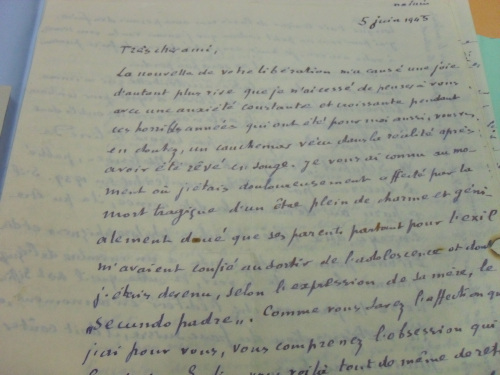 5 juin 1945
Très cher ami,
La nouvelle de votre libération m'a causé une joie
d'autant plus vive que je n'ai cessé de penser à vous
avec une anxiété constante et croissante pendant
ces horribles années qui ont été pour moi aussi,
en doutez, un cauchemar vécu dans la réalité après
avoir été rêvé en songe. Je vous ai connu au mo-
ment où j'étais douloureusement affecté par la
mort tragique d'un être plein de charme et géni-
alement doué que ses parents partant pour l'exil
m'avaient confié au sortir de l'adolescence et dont
j'étais devenu, selon l'expression de sa mère, le
„secundo padre„. Comme vous savez l'affection que
j'ai pour vous, vous comprenez l'obsession qui
voilà tout de même de ret